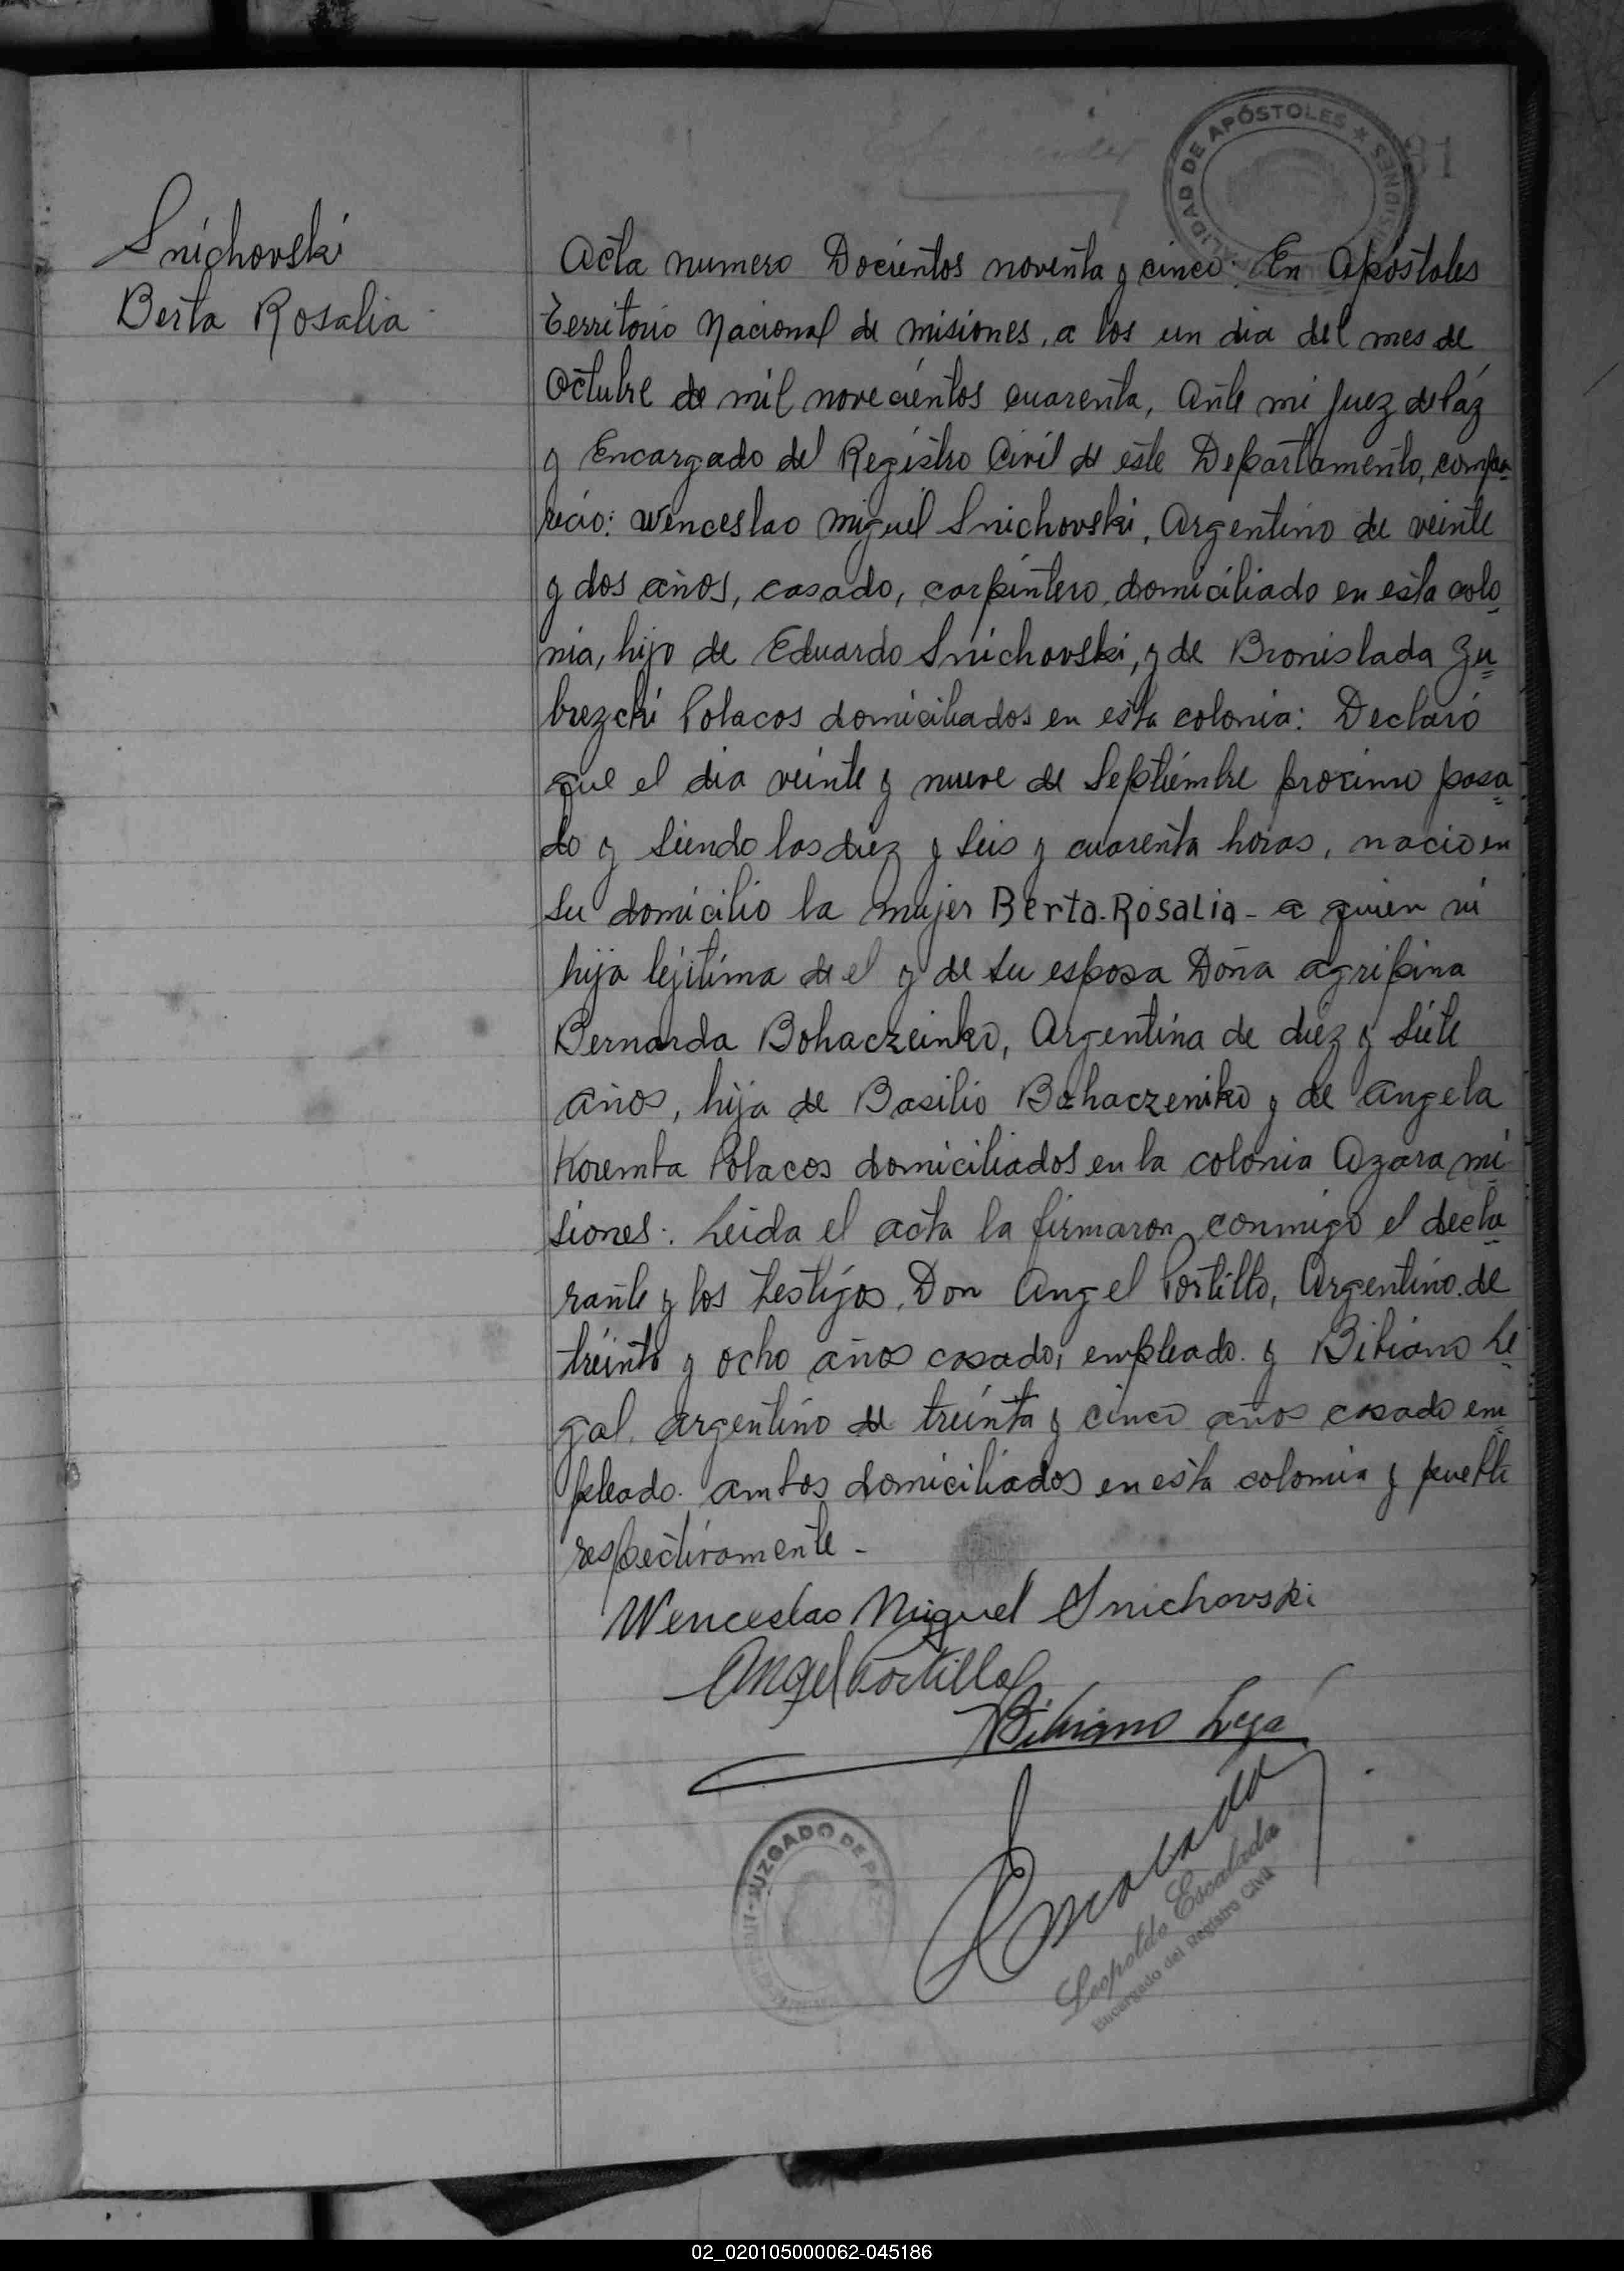 MUNICIPALIDAD DE APÓSTOLES ★ MISIONES
Snichovski
Berta Rosalia
Acta numero Docientos noventa y cinco: En Apostoles
Territorio Nacional de misiones, a los un dia del mes de
Octubre de mil novecientos cuarenta, Ante mi Juez de Paz
y Encargado del Registro Civil de este Departamento, compa=
recio: Wenceslao Miguel Snichovski, Argentino de veinte
y dos años, casado, carpintero, domiciliado en esta colo=
nia, hijo de Eduardo Snichovski, y de Bronislada Zu=
brezcki Polacos domiciliados en esta colonia: Declaró
que el dia veinte y nueve de Septiembre proximo pasa=
do y siendo las diez y seis y cuarenta horas, nacio en
su domicilio la mujer Berta-Rosalia- a quien vi
hija lejitima de el y de su esposa Doña agripina
Bernarda Bohaczeinko, Argentina de diez y siete
años, hija de Basilio Bohaczeniko y de Angela
Koremba Polacos domiciliados en la colonia Azara mi=
siones: Leida el acta la firmaron conmigo el decla=
rante y los testigos, Don Angel Portillo, Argentino de
treinta y ocho años casado, empleado. y Bibiano Le=
gal, argentino de treinta y cinco años casado em=
pleado. ambos domiciliados en esta colonia y pueblo
respectivamente -
Wenceslao Miguel Snichovski
Angel Portillo
Bibiano Legal
JUZGADO DE PAZ
Escalada
Leopoldo Escalada
Encargado del Registro Civil
02_020105000062-045186